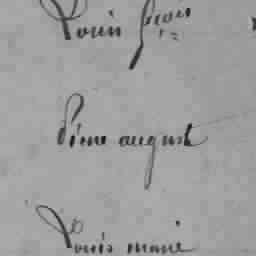 Louis franc
Pierre august
Louis marie